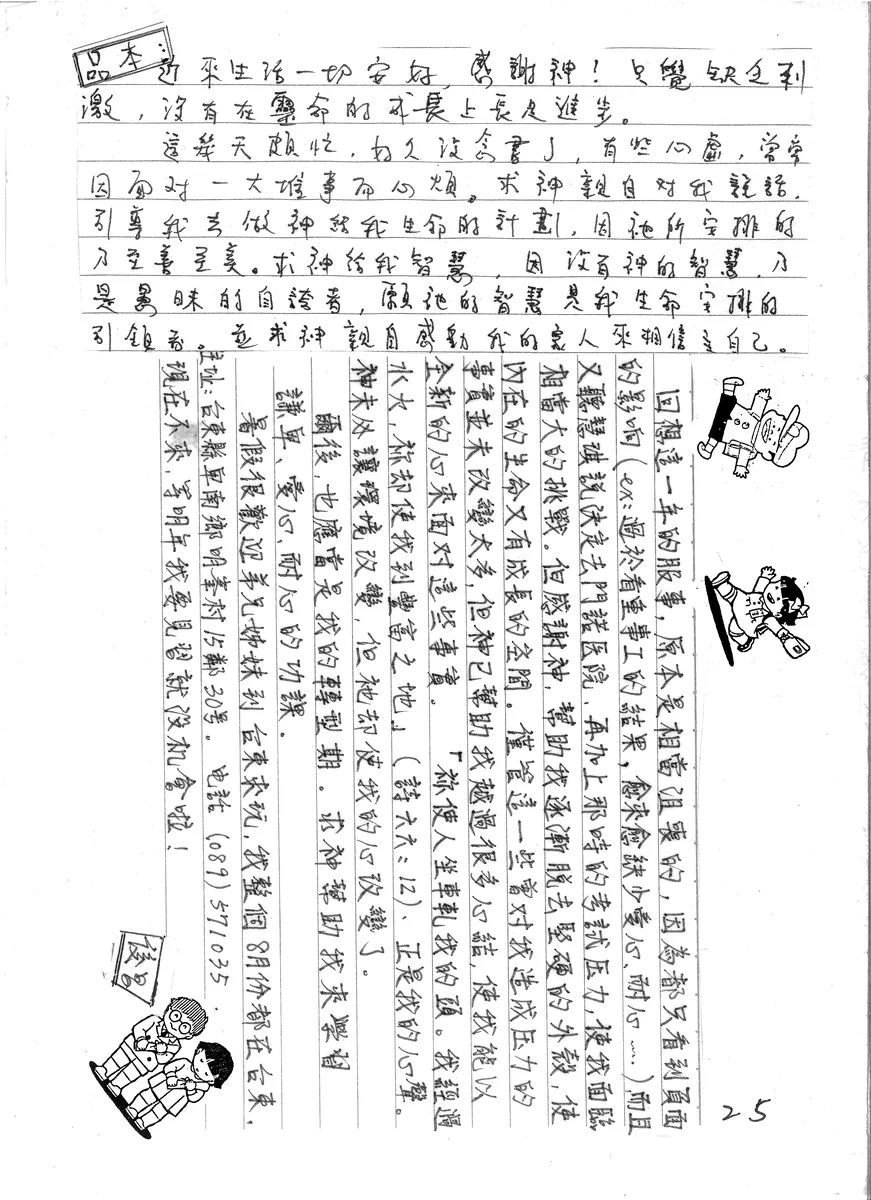 品本:
近來生活一切安好,感謝神!只覺缺乏刺
激,沒有在靈命的成長上長足進步。
這幾天頗忙,好久沒念書了,有些心虛,常常
因面对一大堆事而心煩。求神親自对我說話,
引導我去做神給我生命的計劃,因祂所安排的
乃至善至美。求神給我智慧,因沒有神的智慧,乃
是愚昧的自誇者,願祂的智慧是我生命安排的
引領者。並求神親自感動我的家人來相信主自己。
回想這一年的服事,原本是相當沮喪的,因為都只看到負面
的影响(ex:過於看重事工的結果,愈來愈缺少愛心、耐心……)而且
又聽慧琪說決定去門諾医院,再加上那時的考試压力,使我面臨
相當大的挑戰。但感謝神,幫助我逐漸脫去堅硬的外殼,使
內在的生命又有成長的空間。儘管這一些曾对我造成压力的
事實並未改變太多,但神已幫助我越過很多心結,使我能以
全新的心來面对這些事實。「祢使人坐車軋我的頭。我經過
水火,祢却使我到豐富之地」(詩六六:12)、正是我的心聲。
神未必讓環境改變,但祂却使我的心改變了。
爾後,也應當是我的轉型期。求神幫助我來學習
謙卑、愛心、耐心的功課。
暑假很歡迎弟兄姊妹到台東來玩,我整個8月份都在台東,
住址:台東縣卑南鄉明峯村15鄰30号。电話(089)571035.
現在不來,等明年我要見習就沒机會啦!
25